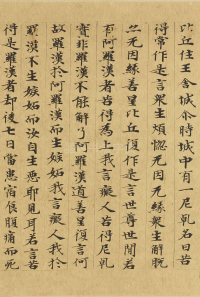 比丘住王舍城尒時城中有一尼乹名曰苦
得常作是言眾生煩惱无因无緣眾生解脫
亦无因緣善星比丘復作是言世尊世間若
有阿羅漢者苦得為上我言癡人苦得尼乹
實非羅漢不能解了阿羅漢道善星復言何
故羅漢於阿羅漢而生嫉妬我言癡人我於
羅漢不生嫉妬而汝自生惡耶見耳若言苦
得是羅漢者却後七日當患宿食腹痛而死